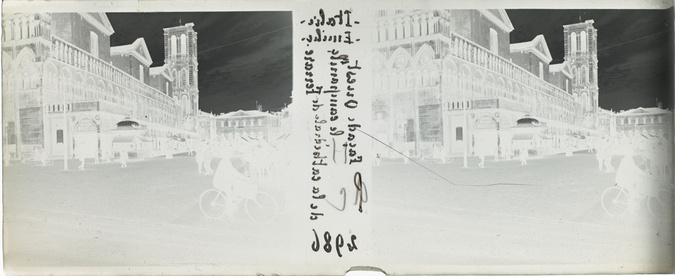 -Italie.-
-Emilie.-
Façade Ouest
et le campanile
de la cathédrale de Ferrare
2986